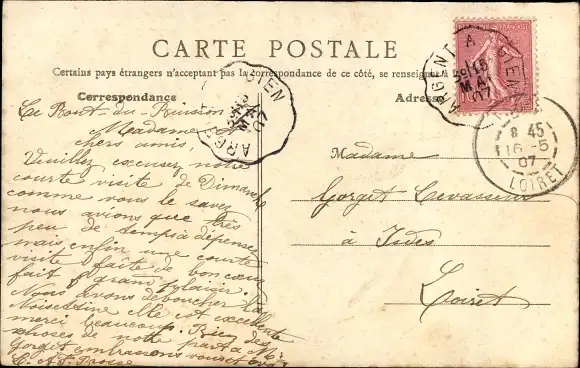 CARTE POSTALE
Certains pays étrangers n'acceptant pas la correspondance de ce côté, se renseigner à
Correspondance
Adresse
Ce Pont-du-Buisson
Madame
chers amis,
Veuillez excusez notre
courte visite de Dimanche
comme vous le savez
nous avions que très
peu de temps à dépenser
mais enfin une courte
visite faîte de bon coeur
fait grand plaisir.
Nous avons deboucher la
Noisetine Elle est excellente
merci beaucoup. Bien des
choses de notre part à Mr
Gorget
Madame
Gorget Levasseur
à Isdes
Loiret
ARGENT A GIEN
16
MAI
07
ARGENT A GIEN
MAI
07
8 45
16-5
07
LOIRET